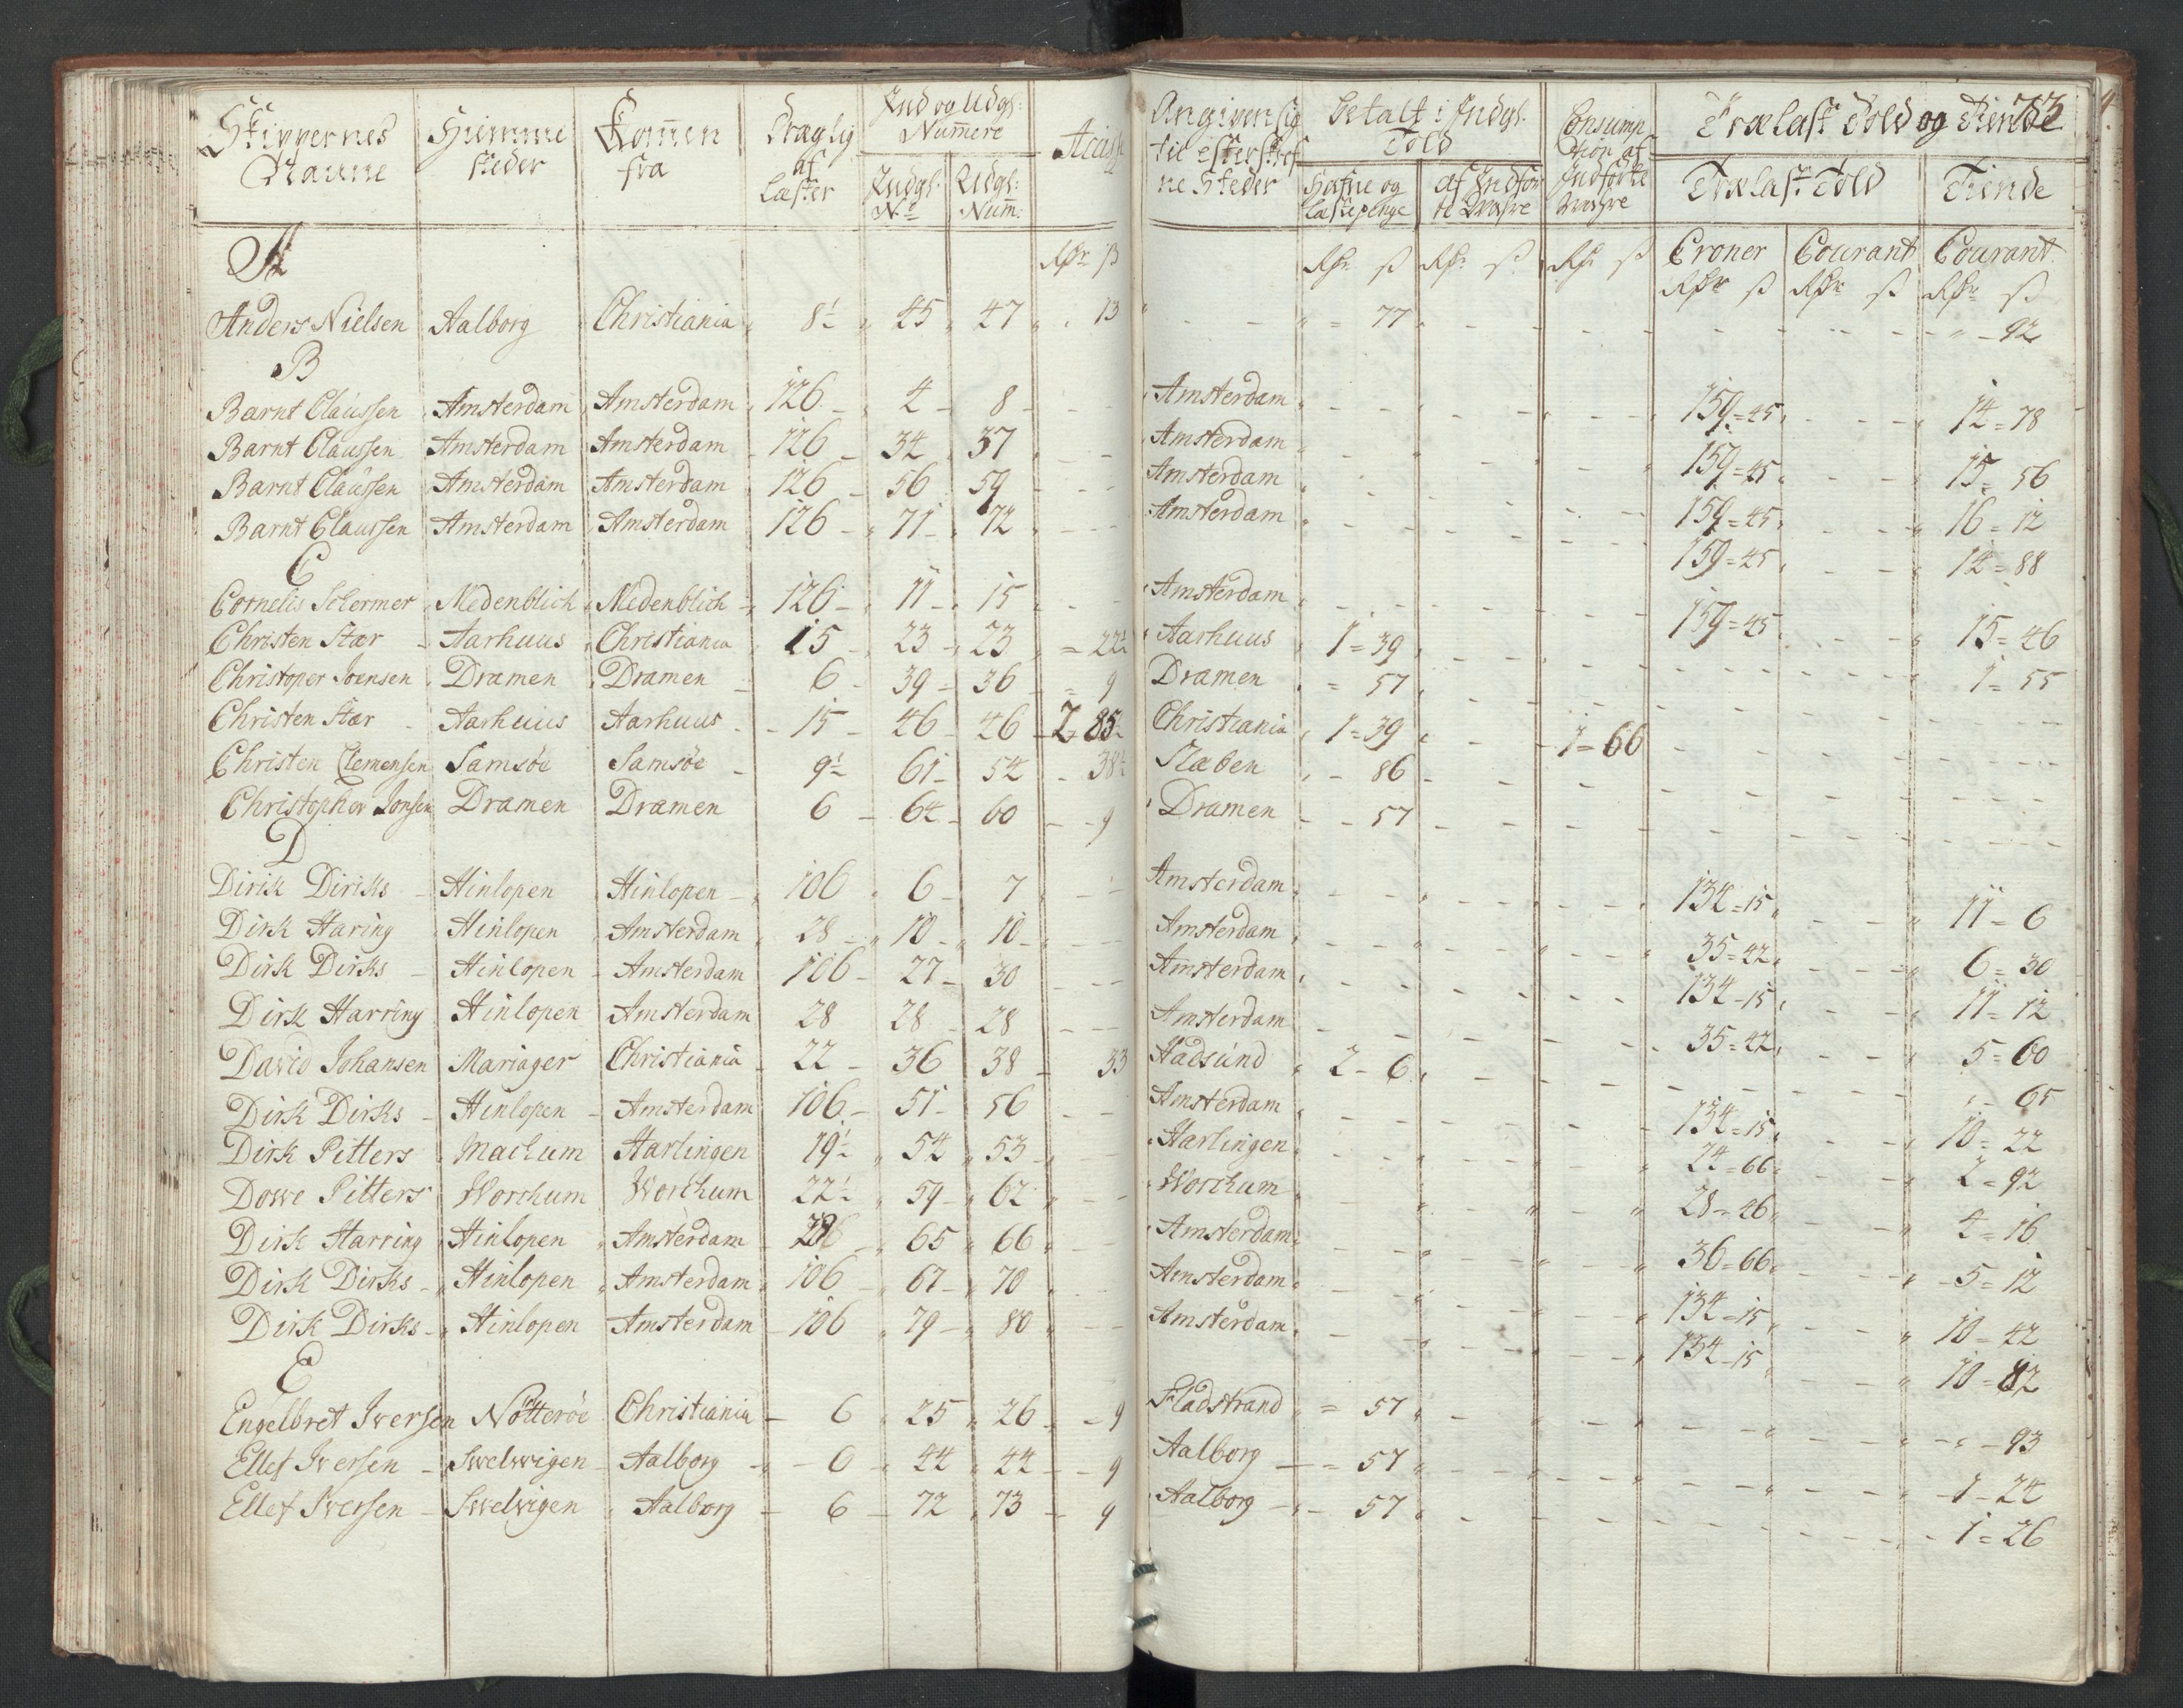 73
Skippernes Naune | Hiemme steder | Komen fra | Dræglig af Læster | Ind og Udgl: Numere | Indgl: No | Udgl: Num: | Acise | Angiven sig til efterskrefne Steder | betalt i Indgl: Told | Hafne og Læstepenge | af Indførte Wahre | Consumption af Indførte Wahre | Trælast Told og Tiende | Trælast Told | Tiende
Croner | Courant | Courant
A
Anders Nielsen Aalborg Christiania 8½ 45 47 13 - 77 - 92
B
Barnt Claussen Amsterdam Amsterdam 126 4 8 Amsterdam 159=45 14=78
Barnt Claussen Amsterdam Amsterdam 126 34 37 Amsterdam 159=45 15=56
Barnt Claussen Amsterdam Amsterdam 126 56 59 Amsterdam 159=45 16=12
Barnt Claussen Amsterdam Amsterdam 126 71 72 Amsterdam 159=45 14=88
C
Cornelis Schermer Medenblich Medenblich 126 11 15 Amsterdam 159=45 15=46
Christen Stær Aarhuus Christiania 15 23 23 =22½ Aarhuus 1=39 1=55
Christoper Joensen Dramen Dramen 6 39 36 =9 Dramen =57
Christen Stær Aarhuus Aarhuus 15 46 46 2 85½ Christiania 1=39 1=66
Christen Clemensen Samsöe Samsöe 9½ 61 54 38¼ Slæben 86
Christopher Jonsen Dramen Dramen 6 64 60 9 Dramen 57
D
Dirik Diriks Hinlopen Hinlopen 106 6 7 Amsterdam 134=15 11=6
Dirk Haring Hinlopen Amsterdam 28 10 10 Amsterdam 35=42 6=30
Dirk Dirks Hinlopen Amsterdam 106 27 30 Amsterdam 134=15 11=12
Dirk Harring Hinlopen Amsterdam 28 28 28 Amsterdam 35=42 5=60
David Johansen Mariager Christiania 22 36 38 33 Hadsund 2-6 - 65
Dirk Dirks Hinlopen Amsterdam 106 51 56 Amsterdam 134=15 10=22
Dirk Pitters Machum Harlingen 19½ 54 53 Harlingen 24=66 2=92
Dowe Pitters Worchum Worchum 22½ 59 62 Worchum 28=46 4=16
Dirk Harring Hinlopen Amsterdam 65 66 Amsterdam 36=66 5=12
Dirk Dirks Hinlopen Amsterdam 106 67 70 Amsterdam 134=15 10=42
Dirk Dirks Hinlopen Amsterdam 106 79 80 Amsterdam 134=15 10=82
E
Engelbret Iversen Nötteröe Christiania 6 25 26 9 Fladstrand =57 - 93
Ellef Iversen Swelwigen Aalborg 6 44 44 9 Aalborg =57 1-24
Ellef Iversen Swelvigen Aalborg 6 72 73 9 Aalborg 57 1=26